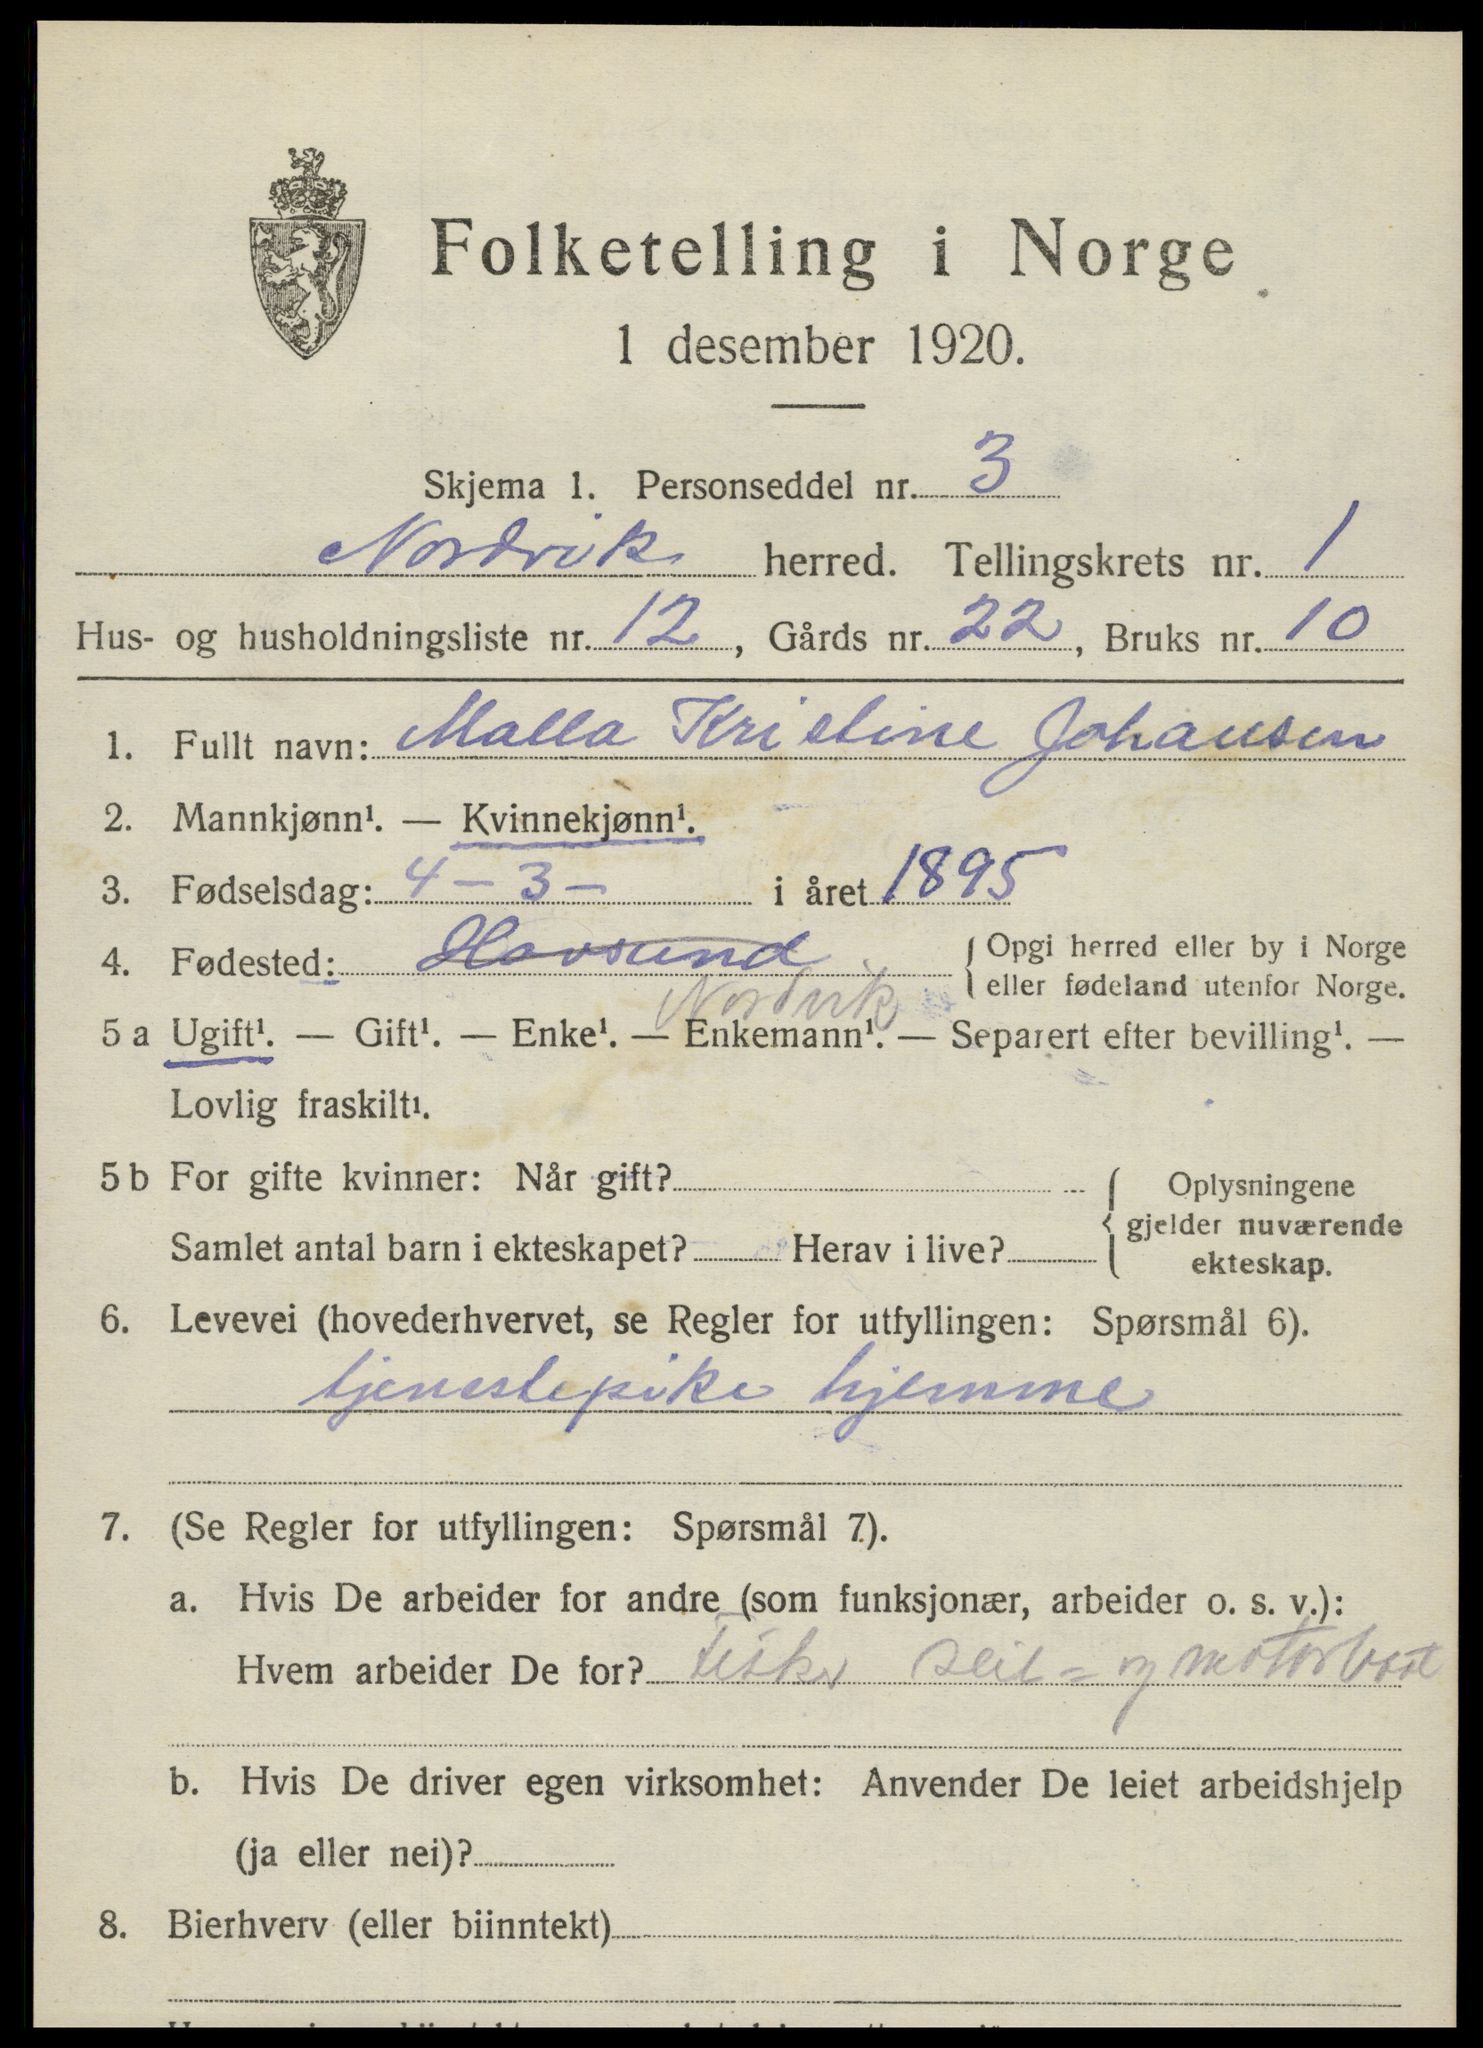 Folketelling i Norge
1 desember 1920.
Skjema 1. Personseddel nr. 3
Nordvik herred. Tellingskrets nr. 1
Hus- og husholdningsliste nr. 12, Gårds nr. 22, Bruks nr. 10
1. Fullt navn: Malla Kristine Johansen
2. Mannkjønn¹. — Kvinnekjønn¹.
3. Fødselsdag: 4 - 3 - i året 1895
4. Fødested: Havsund { Opgi herred eller by i Norge
eller fødeland utenfor Norge.
Nordvik
5 a Ugift¹. — Gift¹. — Enke¹. — Enkemann¹. — Separert efter bevilling¹. —
Lovlig fraskilt¹.
5 b For gifte kvinner: Når gift? Oplysningene
gjelder nuværende
Samlet antal barn i ekteskapet? Herav i live? ekteskap.
6. Levevei (hovederhvervet, se Regler for utfyllingen: Spørsmål 6).
tjenestepike hjemme
7. (Se Regler for utfyllingen: Spørsmål 7).
a. Hvis De arbeider for andre (som funksjonær, arbeider o. s. v.):
Hvem arbeider De for? fisker seil = og motorbaat
b. Hvis De driver egen virksomhet: Anvender De leiet arbeidshjelp
(ja eller nei)?
8. Bierhverv (eller biinntekt)